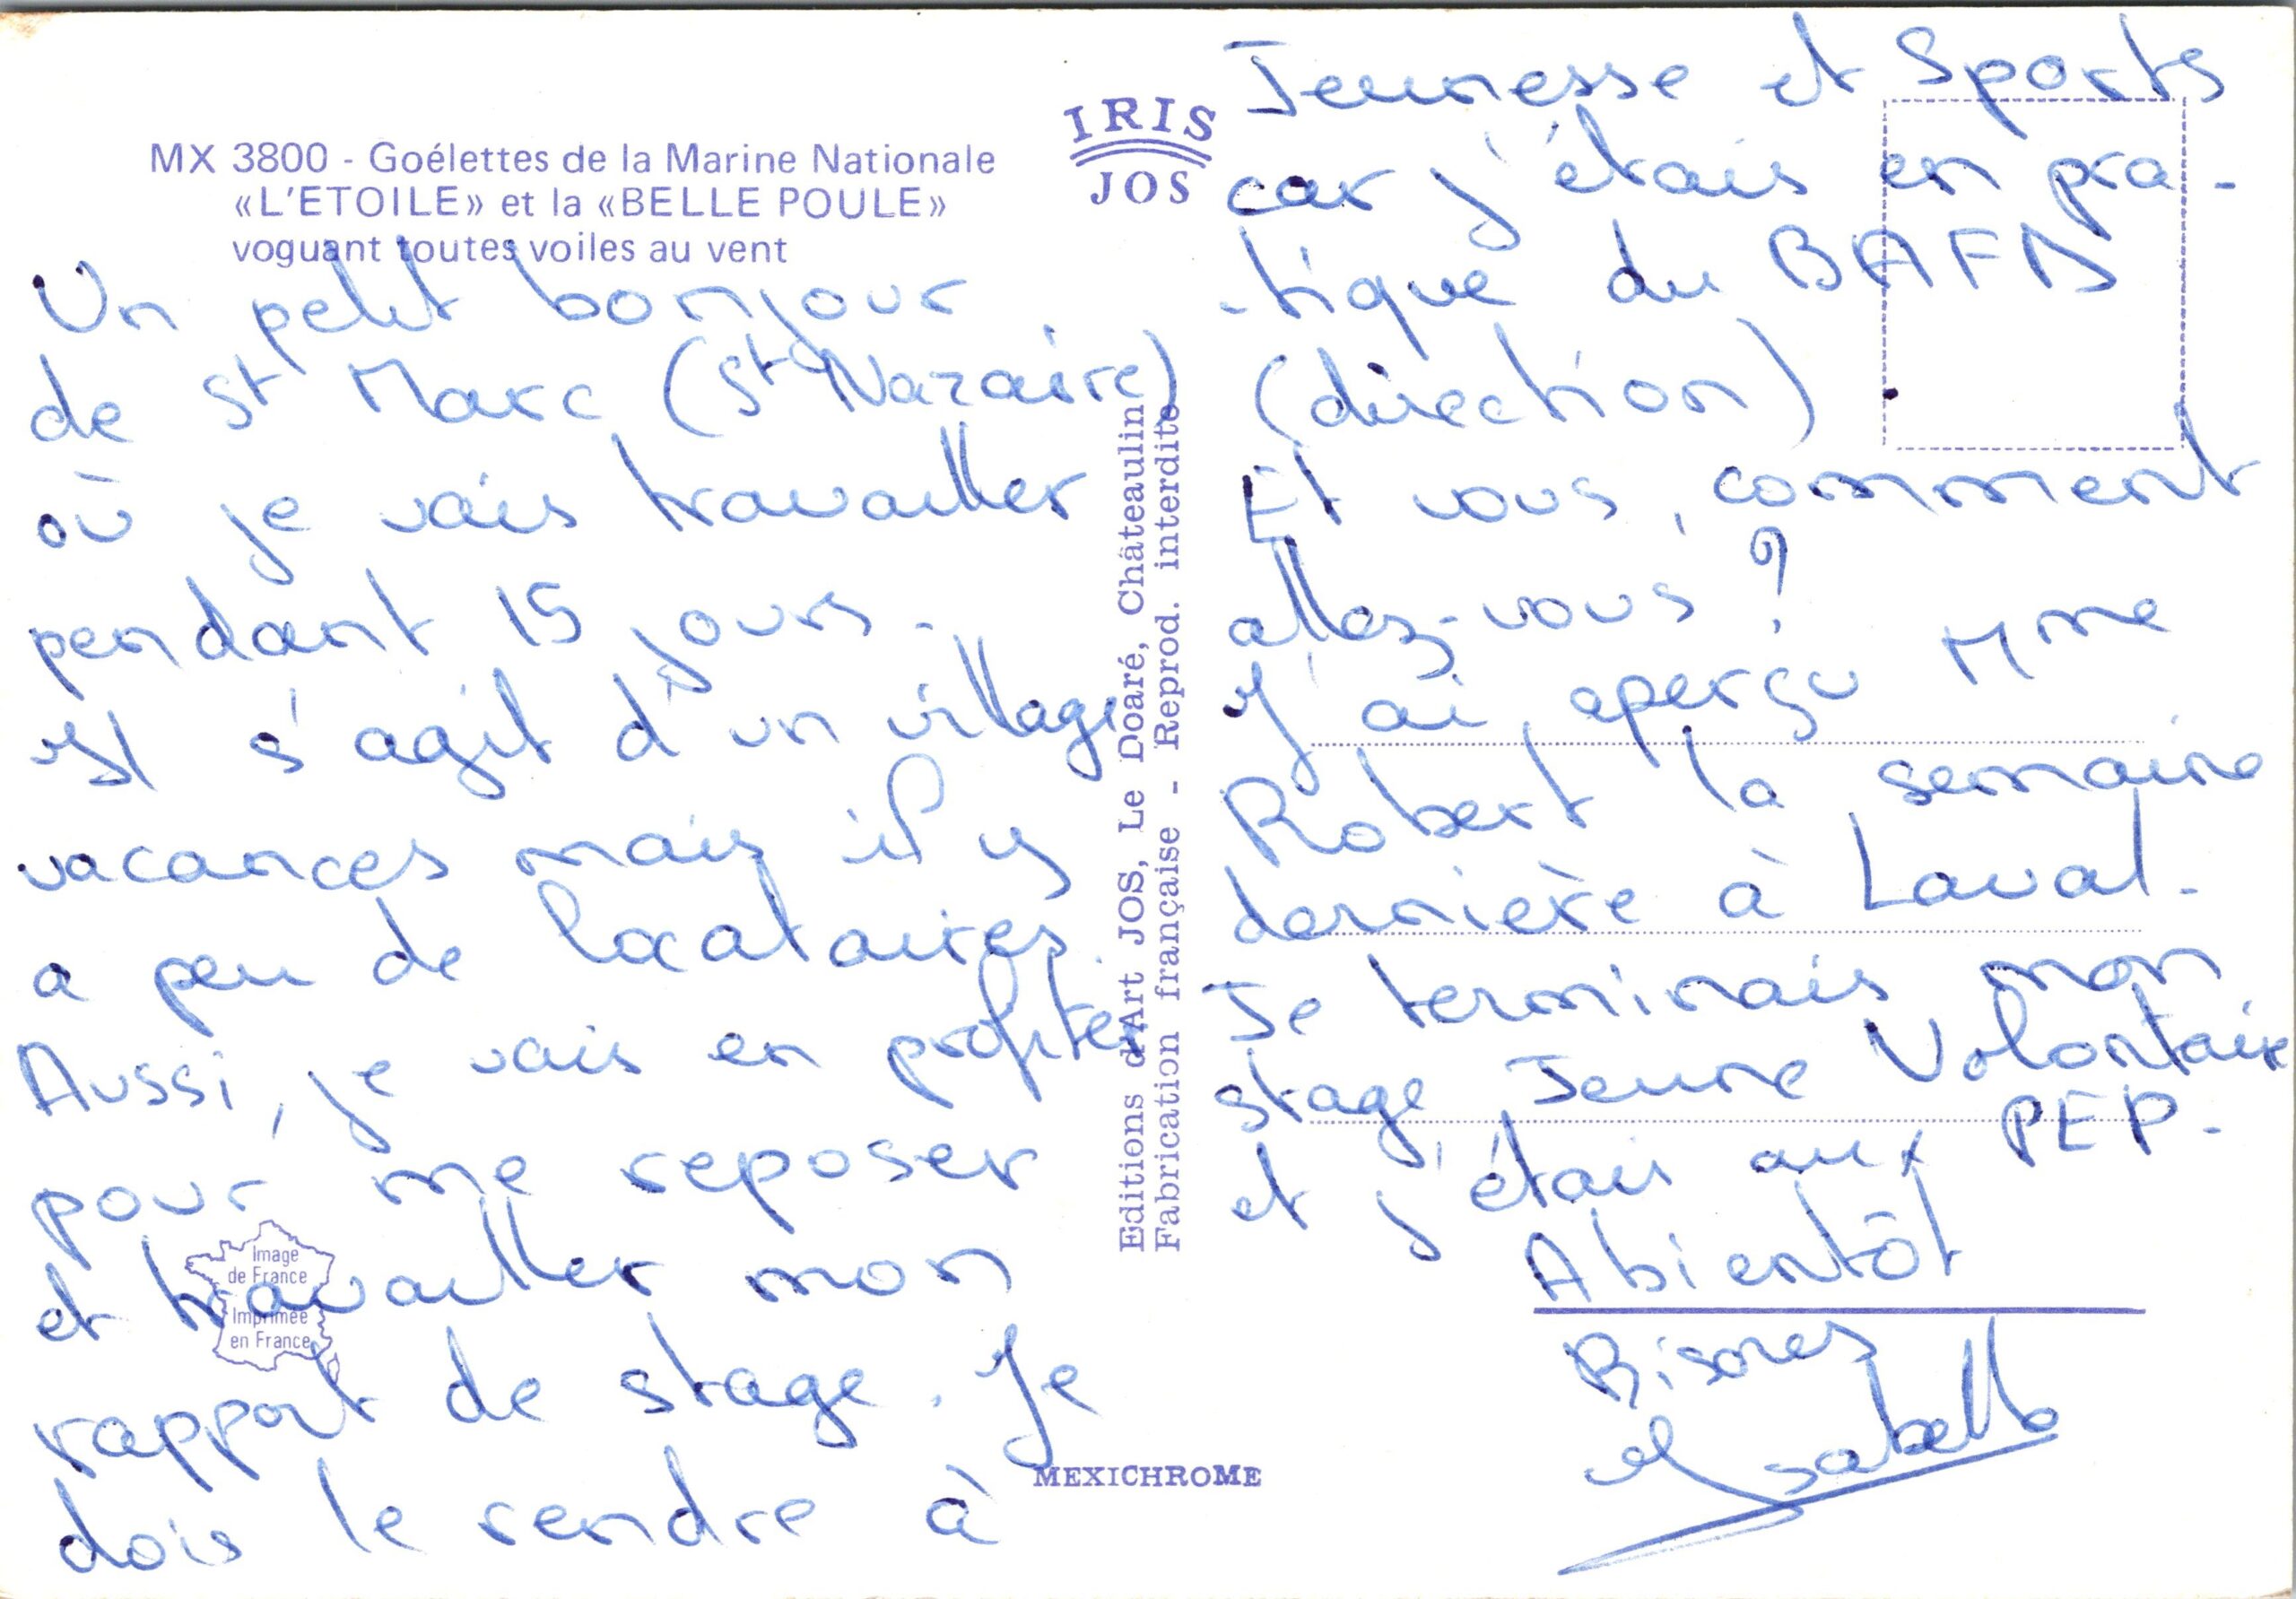 MX 3800 - Goélettes de la Marine Nationale
«L'ETOILE» et la «BELLE POULE»
voguant toutes voiles au vent
IRIS
JOS
Un petit bonjour
de St Marc (St Nazaire)
où je vais travailler
pendant 15 jours.
Il s'agit d'un village
vacances mais il y
a peu de locataires.
Aussi, je vais en profiter
pour me reposer
et travailler mon
rapport de stage. Je
dois le rendre à
Image
de France
Imprimée
en France
Editions d'Art JOS, Le Doaré, Châteaulin
Fabrication française - Reprod. interdite
MEXICHROME
Jeunesse et Sports
car j'étais en pra-
-tique du BAFD
(direction).
Et vous, comment
allez-vous ?
J'ai aperçu Mme
Robert la semaine
dernière à Laval.
Je terminais mon
stage Jeune Volontaire
et j'étais aux PEP.
A bientôt
Bisoues
Isabelle